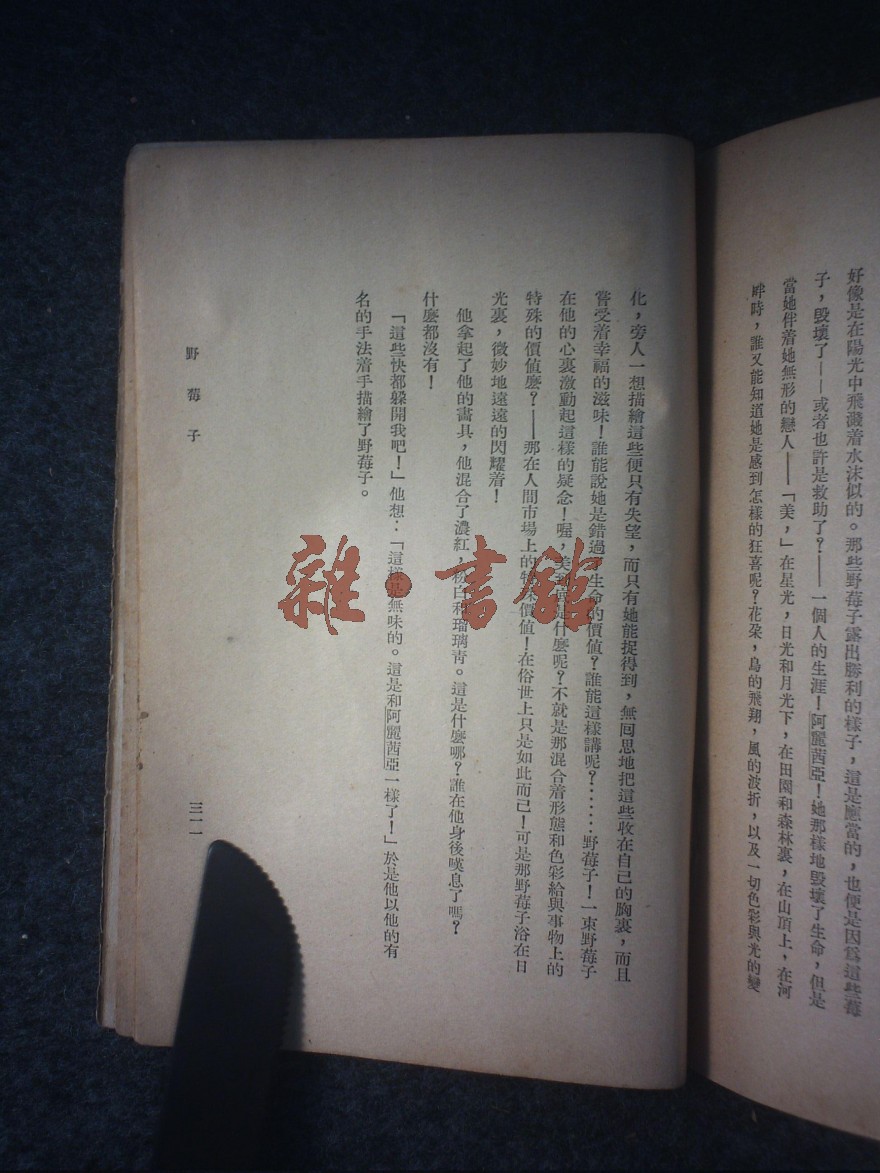 好像是在陽光中飛濺着水沫似的。那些野莓子露出勝利的樣子，這是應當的，也便是因爲這些莓
子，毀壞了——或者也許是救助了？——一個人的生涯！阿麗茜亞！她那樣地毀壞了生命，但是
當她伴着她無形的戀人——「美，」在星光，日光和月光下，在田園和森林裏，在山頂上，在河
畔時，誰又能知道她是感到怎樣的狂喜呢？花朵，鳥的飛翔，風的波折，以及一切色彩與光的變
化，旁人一想描繪這些便只有失望，而只有她能捉得到，無囘思地把這些收在自己的胸裏，而且
嘗受着幸福的滋味！誰能說她是錯過了生命的價值？誰能這樣講呢？……野莓子！一束野莓子
在他的心裏激動起這樣的疑念！喔，美 是什麼呢？不就是那混合着形態和色彩給與事物上的
特殊的價值麼？——那在人間市場上的特殊價值！在俗世上只是如此而已！可是那野莓子浴在日
光裏，微妙地遠遠的閃耀着！
他拿起了他的畵具，他混合了濃紅，粉白和瑠璃青。這是什麼哪？誰在他身後嘆息了嗎？
什麼都沒有！
「這些快都躱開我吧！」他想：「這樣是無味的。這是和阿麗茜亞一樣了！」於是他以他的有
名的手法着手描繪了野莓子。
野莓子
三一一
雜·書館